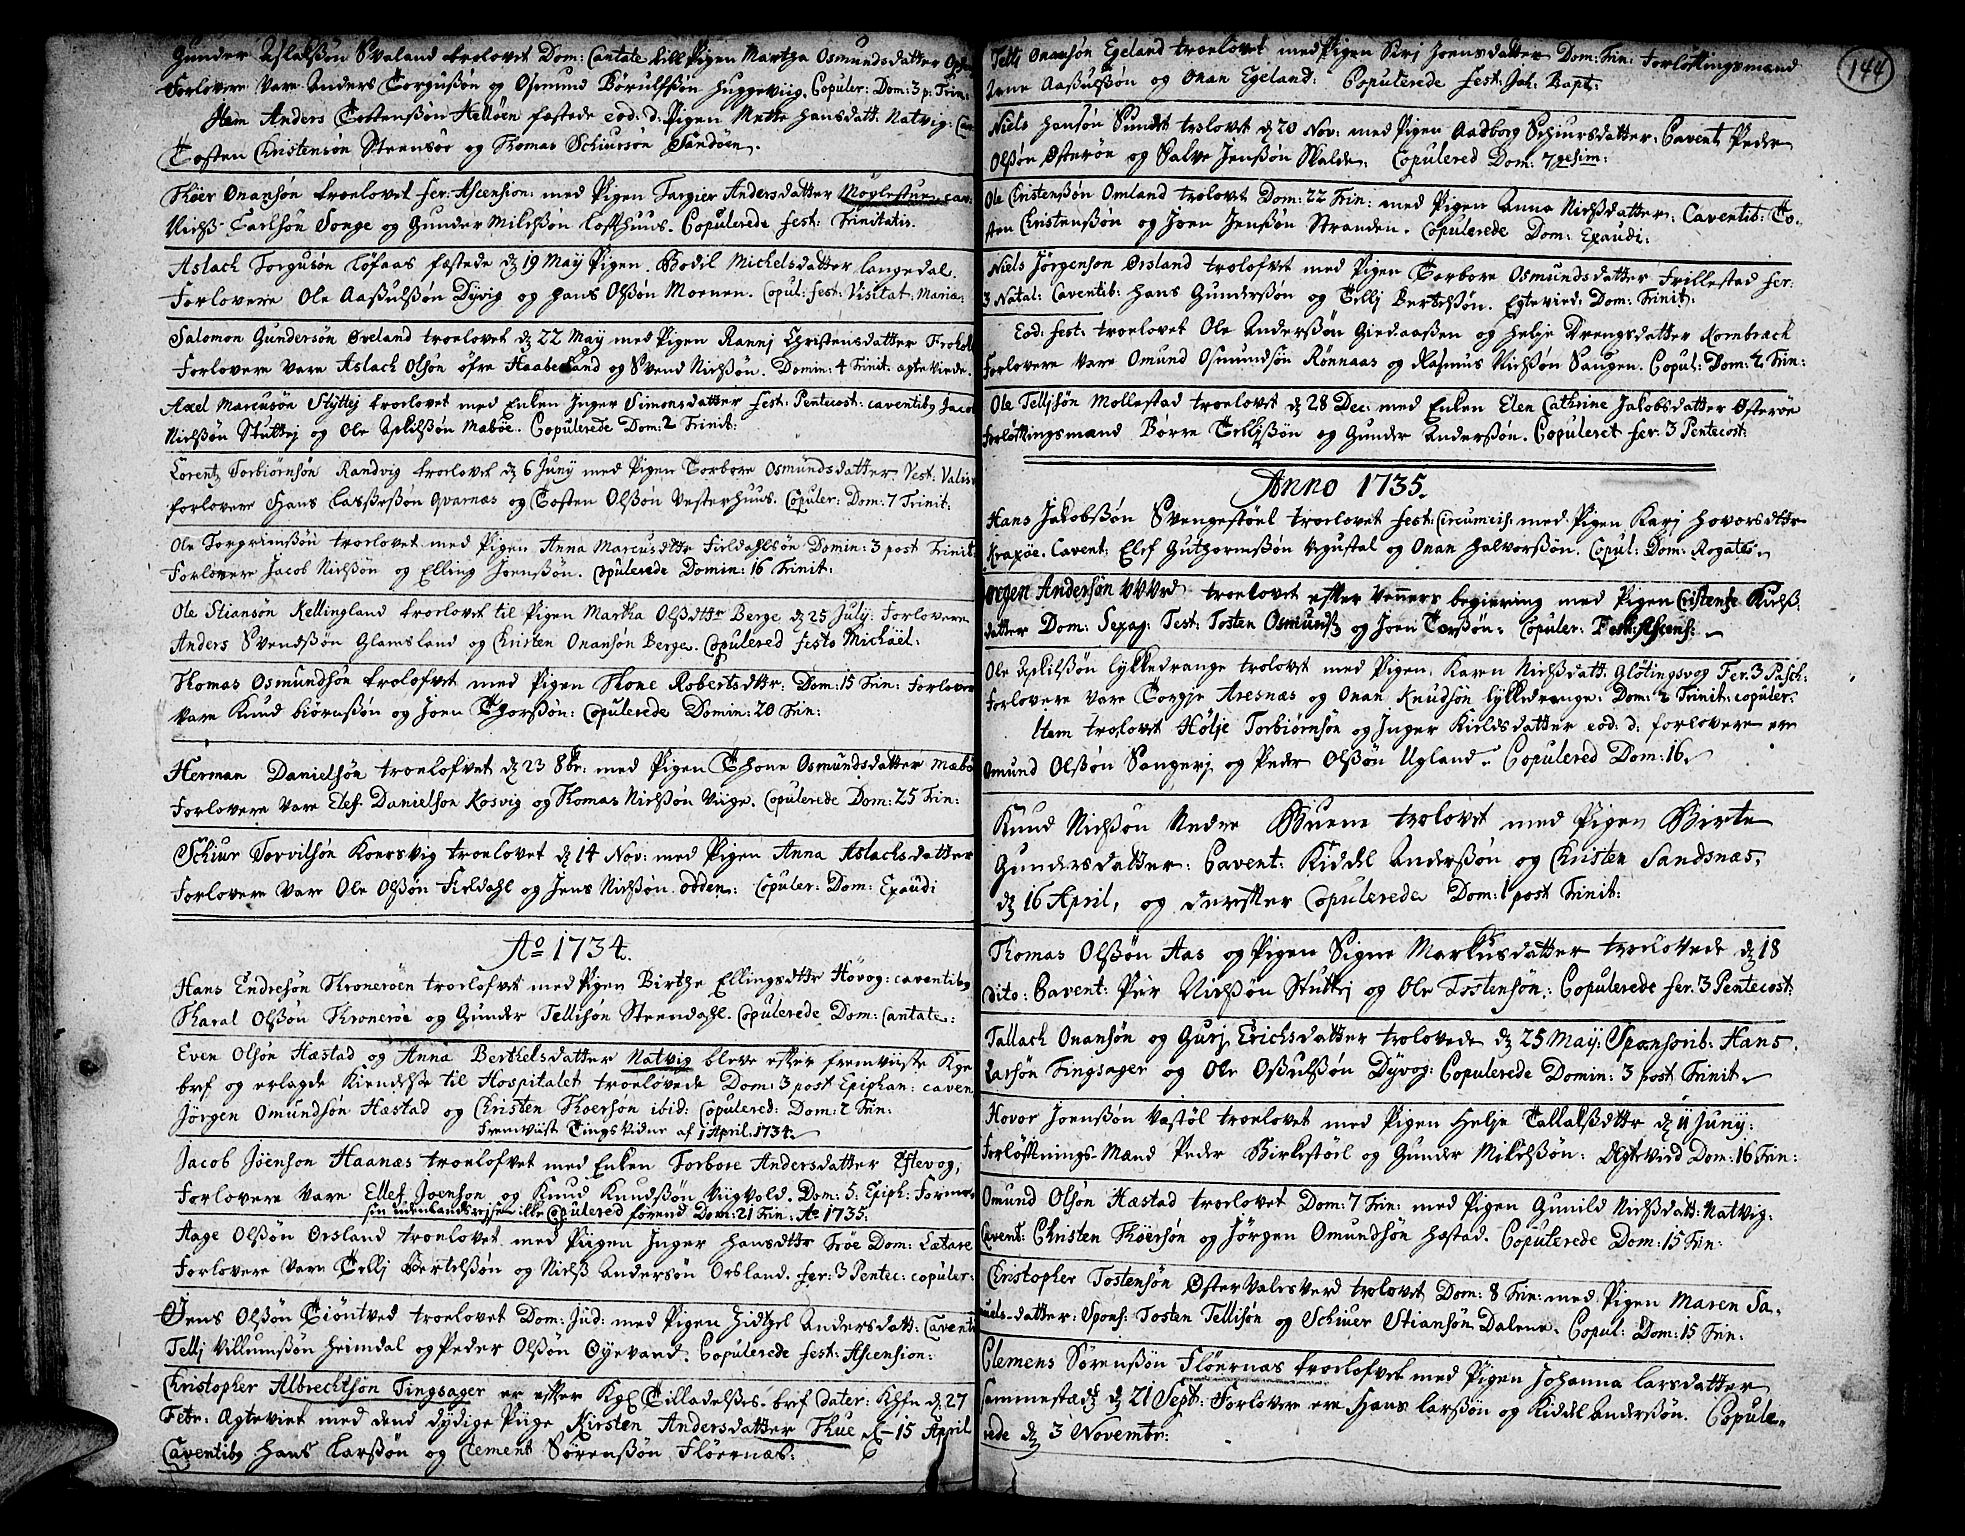 Gunder Aslakßøn Svaland troelovet Dom: Cantate till Pigen Martha Osmundsdatter
Forlovere vare Anders Torgusßøn og Osmund Børulfßøn huggeviig. Copuler: Dom: 3 p: Trin:
Item Anders Tostensßøn Helløen festede eod: d: Pigen Mette hansdatt: Natvig:
Tosten Christensøn Steensøe og Thomas Schiursøn Sandøen.
Thoer Onansøn troelovet fer: Ascension: med Pigen Targier Andersdatter Møglestue cav:
Nielß Carlsøn Songe og Gunder Milchßøn Lofthuus. Copulerede fest: Trinitatis.
Aslach Torgusøn Løfaas fæstede d: 19 Maÿ Pigen Bodil Michelsdatter langedal.
Forlovere Ole Aaßulßøn Dÿvig og hans Olßøn Moenen. Copul: fest: Visitat: Maria:
Salomon Gundersøn Øveland troelovet d: 22 Maÿ med Pigen Rannj Christensdatter
Forlovere vare Aslach Olsøn øfre Haabesland og Svend Nielßøn. Domin: 4 Trinit: agtevirde.
Axel Marcusøn Stÿttej troelovet med Enken Inger Simonsdatter fest: Pentecost: caventib: Jacob
Nielßøn Stuttej og Ole Askilßøn Mabøe. Copulerede Dom: 2 Trinit:
Lorentz Torbiørnsøn Randvig troelovet d: 6 Junÿ med Pigen Torbore Osmundsdatter Vest: Valis
forlovere Hans Larßesøn qvarnæs og Tosten Olßøn Vesterhuus. Copuler: Dom: 7 Trinit:
Ole Torgrimßøn troelovet med Pigen Anna Marcusdttr Fieldahlsøn Domin: 3 post Trinit
Forlovere Jacob Nielßøn og Elling Joensßøn. Copulerede Domin: 16 Trinit:
Ole Stiansøn Kellingland troelovet til Pigen Martha Olßdttr Berge d: 25 Julÿ: Forlovere
Anders Svendßøn Glamsland og Christen Onansøn Berge. Copulered festo Michaël.
Thomas Osmundsøn trolofvet med Pigen Thone Robertsdttr: Dom: 15 Trin: Forlovere
vare Knud biørnßøn og Joen Thorßøn: Copulerede Domin: 20 Trin:
Herman Danielsøn troelofvet d: 23 8br: med Pigen Thone Osmundsdatter Mæbø
Forlovere vare Elef Danielsøn Kosvig og Thomas Nielßøn Viige. Copulerede Dom: 25 Trin:
Schiur Torvilsøn Koersvig troelovet d: 14 Nov: med Pigen Anna Aslachsdatter
Forlovere vare Ole Olßøn Fieldahl og Jens Nielßøn odden: Copuler: Dom: Exaudi
Ao 1734.
Hans Endresøn Throneröen troelofvet med Pigen Birthe Ellingsdttr Høvog: caventib:
Tharal Olßøn Throneröe og Gunder Tellisøn Steendahl. Copulerede Dom: Cantate:
Even Olsøn Hæstad og Anna Berthelsdatter Natvig bleve efter fremviiste Kge
bref og erlagde Kiendelse til Hospitalet troelovede Dom: 3 post Epiphan: caven
Jörgen Omundsøn Hæstad og Christen Thoersøn ibid: Copulered: Dom: 2 Trin:
Fremviiste Tings Vidne af 1 April. 1734.
Jacob Jöenson Haanæs troelofvet med Enken Torbore Andersdatter Eftevog,
Forlovere vare Ellef Joenson og Knud Knudßøn Viigvold. Dom: 5: Epiph:
sin udenlandsreyse ikke Copulered förend Dom: 21 Trin: Ao 1735.
Aage Olßøn Orsland troelovet med Piigen Inger hansdttr Trøe Dom: Lætare
Forlovere vare Tellj Bertelßøn og Nielß Andersøn Orsland. fer: 3 Pentec: copuler:
Jens Olßøn Tiöntved troelovet Dom: Jud: med Pigen Zidtzel Andersdatt: Caventi
Tellj Villumßøn heimdal og Peder Olßøn Øÿevand. Copulerede fest: Ascension:
Christopher Albrechtsøn Tingsager er efter Kgl Tilladelßes bref dater: Khfn d: 27
Febr: Agteviet med dend dÿdige Piige Kirsten Andersdatter Thue d. 15 April
Caventib: hans Larßøn og Clement Sørensßøn Fløernæs:
144
Tellj Onansøn Egeland troelovet med Pigen Sirj Joensdatter Dom: Trin: Forlöftingsmænd
Arne Aaßulßøn og Onan Egeland: Copulerede fest: Joh: Bapt:
Niels hansøn Sundet trolovet d: 20 Nov: med Pigen Aadborg Schiursdatter: Cavent Peder
Olßøn Østerøe og Salve Jensßøn Skalde: Copulered Dom: 7gesim:
Ole Christensßøn Omland trolovet Dom: 22 Trin: med Pigen Anna Nielßdatter: Caventib: To-
sten Christensßøn og Joen Jensßøn Stranden. Copulerede Dom: Exaudi:
Niels Jörgenson Ørsland trolofvet med Pigen Torbore Osmundsdatter Trillestad fer:
3 Natal: Caventib: Hans Gundersßøn og Tellj Bertelßøn. Egtevied: Dom: Trinit:
Eod: fest: troelovet Ole Andersßøn Giedaasßen og Helje Drengsdatter Kornbrech
Forlovere vare Omund Osmundsøn Rønnaas og Rasmus Nielßøn Saugen. Copul: Dom: 2 Trin:
Ole Telljsøn Mollestad troelovet d: 28 Dec: med Enken Elen Cathrine Jakobsdatter Østerøe
Forløftingsmænd Börre Telljsßøn og Gunder Andersßøn. Copuleret fer: 3 Pentecost:
Anno 1735.
Hans Jakobßøn Svengestöel troelovet fest: Circumcis: med Pigen Karj Hovorsdttr
Kraxøe. Cavent: Elef Guthormsßøn Ugustal og Onan Halvorsßøn. Copul: Dom: Rogate.
Jørgen Andersøn Uuvd troelovet efter venners begiering med Pigen Cristense Nielß
datter Dom: Sexag: Test: Tosten Osmunds: og Joen Torßøn: Copuler: Fest: Ascens:
Ole Askilßøn Lykkedrange trolovet med Pigen Karn Nielßdatt: Glötingsvog Fer: 3 Pasch:
Forlovere vare Torgje Aresnæs og Onan Knudsøn lykkedrange: Dom: 2 Trinit: copuler:
Item trolovet Hölje Torbiörnsøn og Inger Kieldsdatter eod: d: forlovere ere
Omund Olßøn Sangerej og Peder Olßøn Ugland. Copulered Dom: 16.
Knud Nielßøn Nedre Buene trolovet med Pigen Birte
Gundersdatter: Cavent: Kiddel Andersßøn og Christen Sandsnæs,
d: 16 April, og derefter Copulerede Dom: 1 post Trinit:
Thomas Olßøn Aas og Pigen Signe Markusdatter troelovede d: 18
dito: Cavent: Peer Nielßøn Stuttej og Ole Tostensøn: Copulerede fer: 3 Pentecost:
Tallach Onansøn og Gurj Erichsdatter trolovede d: 25 Maÿ: Sponsorib: Hans
Larsøn Tingsager og Ole Oßulßøn Dÿvog: Copulerede Domin: 3 post Trinit
Hovor Joensßøn Vastøl troelovet med Pigen Helje Tallakßdttr d: 11 Junÿ:
Forlöftnings-Mænd Peder Birkestöel og Gunder Mikelßøn: Egtevied Dom: 16 Trin:
Omund Olsøn Hæstad troelovet Dom: 7 Trin: med Pigen Gunild Nielßdatt: Natvig:
Cavent: Christen Thöersøn og Jörgen Omundsøn hæstad. Copulerede Dom: 15 Trin:
Christopher Tostensøn Østervalesverd trolovet Dom: 8 Trin: med Pigen Maren Sa-
muels-datter: Spons: Tosten Tellisøn og Schiuer Stiansøn Dalene. Copul: Dom: 15 Trin:
Clemens Sørensßøn Fløernæs troelofvet med Pigen Johanna Larsdatter
Sammestæd d: 21 Sept: Forlovere ere Hans Larßøn og Kiddel Andersßøn. Copule-
rede d: 3 Novembr: